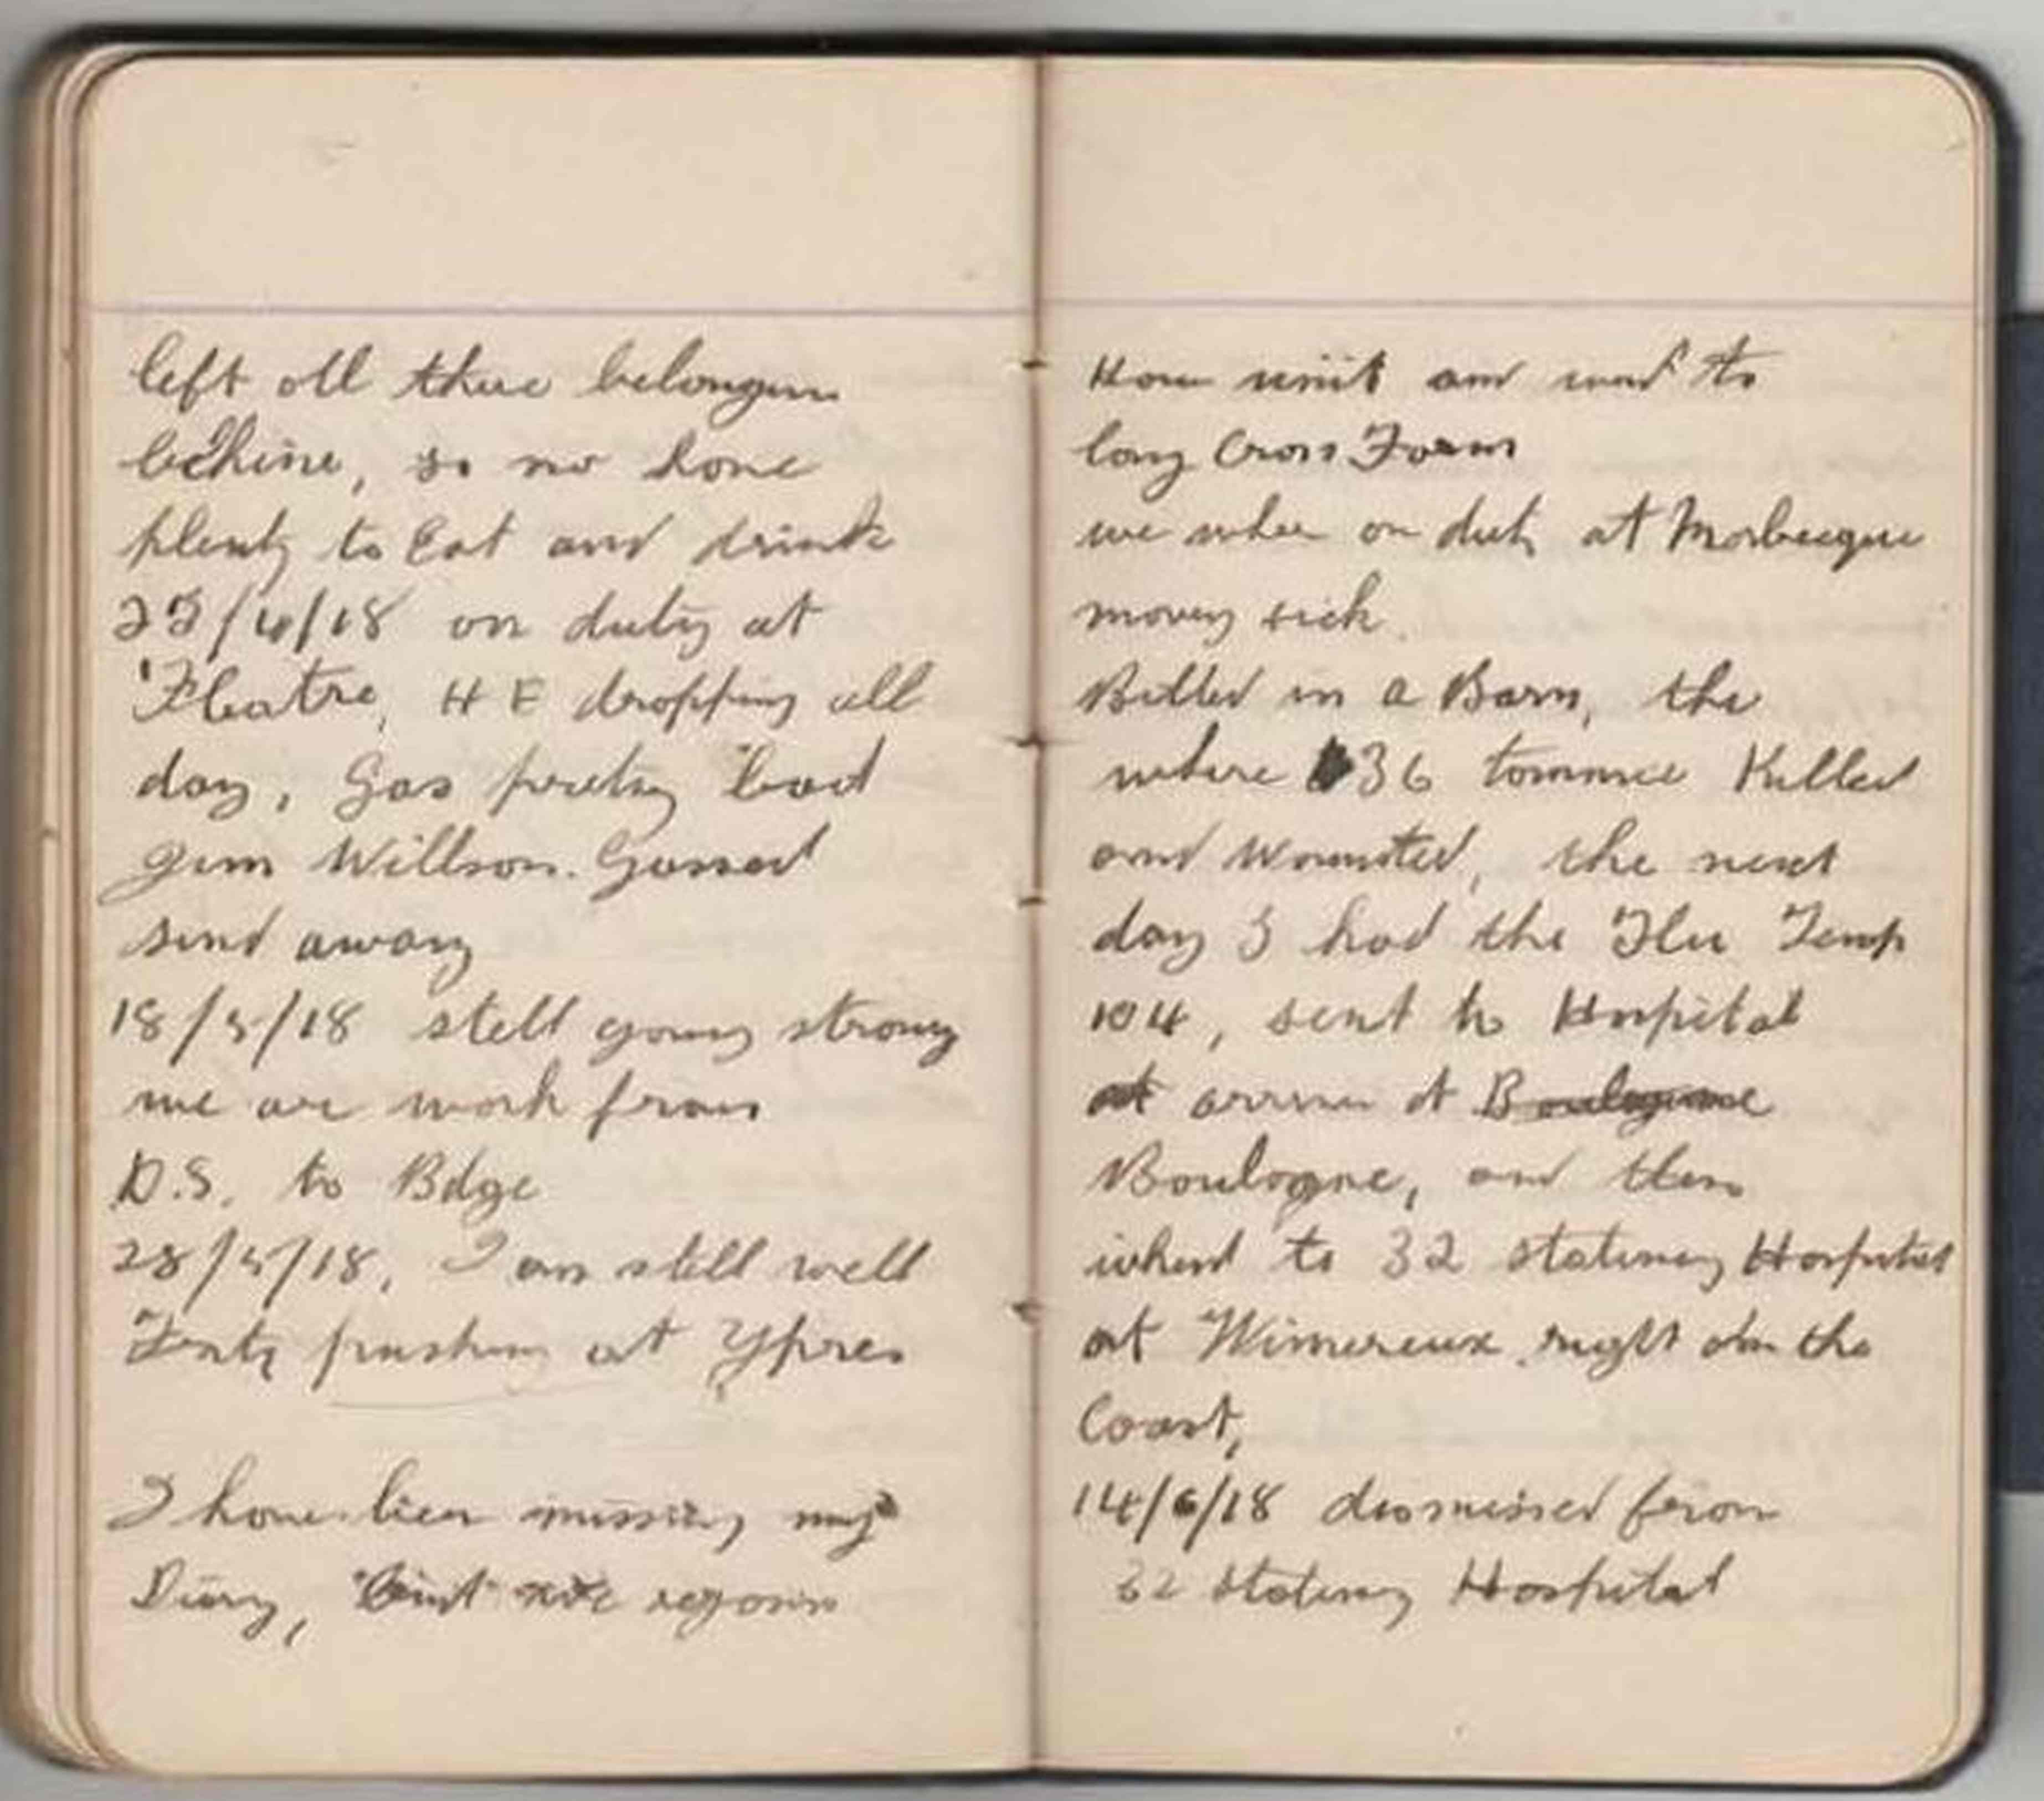 left all there belongen
behine, so we have
plenty to Eat and drink
/4/18 on duty at
Fleatre, H E dropping all
day, Gas pretty bad
Jim Willson. Gassed
send away
18/5/18 still going strong
we are work from
D.S. to Bdge
28/5/18, I am still well
Fritz pushing at Ypres
I have been missing my
Diary, but we rejoin
How unit and went to
long Cross Farm
we wher on duty at Morbecque
money sick.
Billed in a Barn, the
where 36 tommie Killed
and Wounted, the next
day I had the Flu Temp
104, sent to Hospital
at arrive at Boulogne
Boulogne, and then
when to 32 Stationy Hospital
at Wimereux right on the
Coast,
14/6/18 dismissed from
32 Stationy Hospital